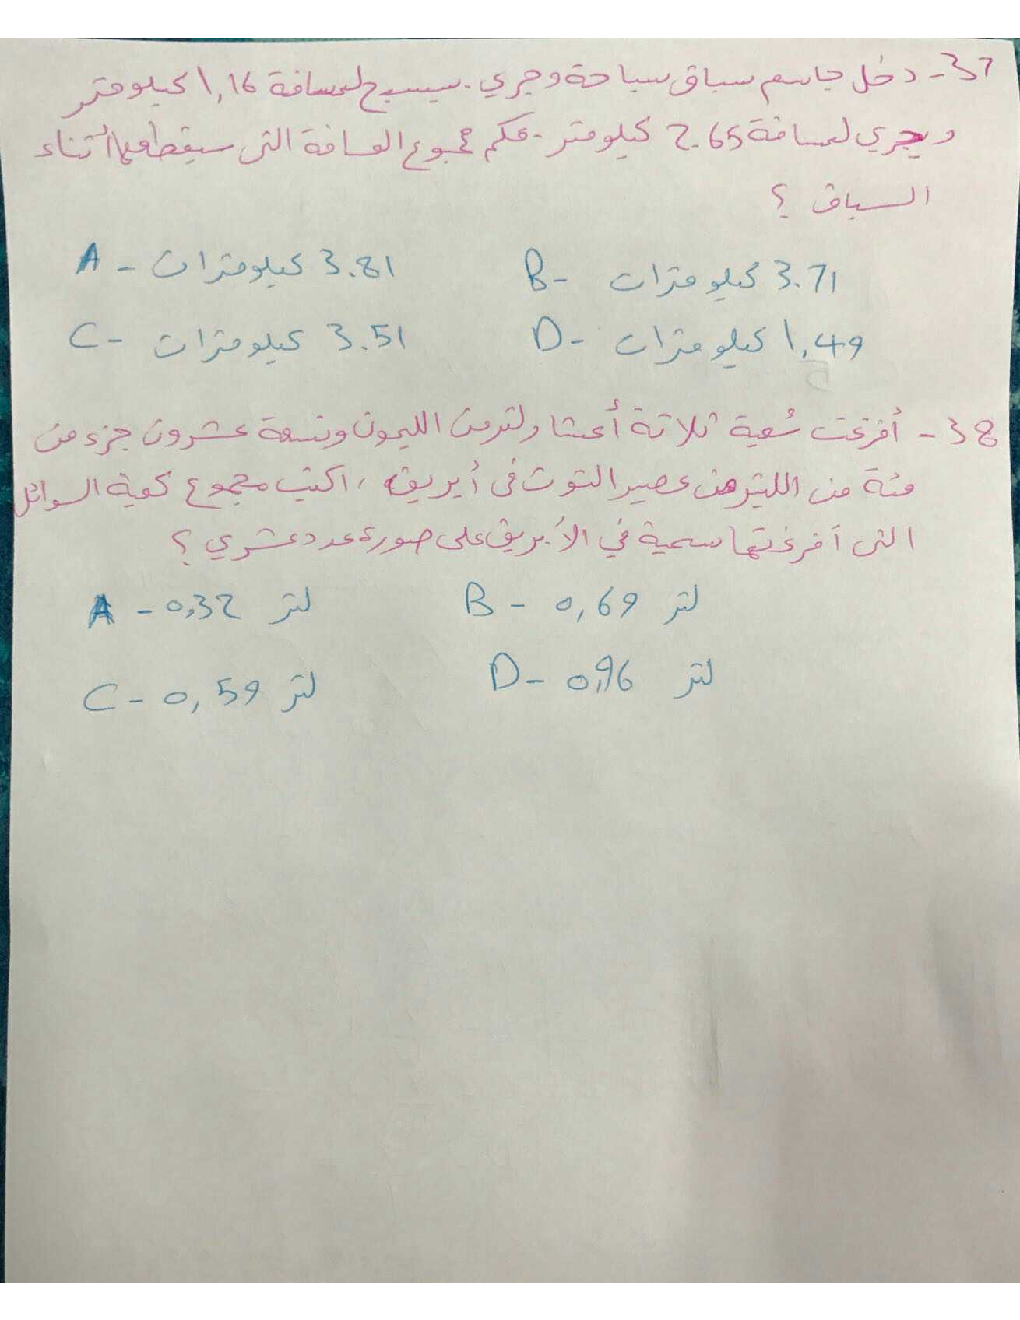 37- دخل جاسم سباق سباحة وجري. سيسبح لمسافة 1,16 كيلومتر
ويجري لمسافة 2.65 كيلومتر - فكم مجموع المسافة التي سيقطعها اثناء
السباق ؟
A - 3.81 كيلومترات B- 3.71 كيلومترات
C- 3.51 كيلومترات D- 1,49 كيلومترات
38- أفرغت سُمية ثلاثة أعشار لتر من الليمون وتسعة عشرون جزء من
مئة من الليتر من عصير التوت في أبريق ، اكتب مجموع كمية السوائل
التي أفرغتها سمية في الأبريق على صورة عدد عشري ؟
A - 0,32 لتر B - 0,69 لتر
C - 0,59 لتر D- 0,96 لتر